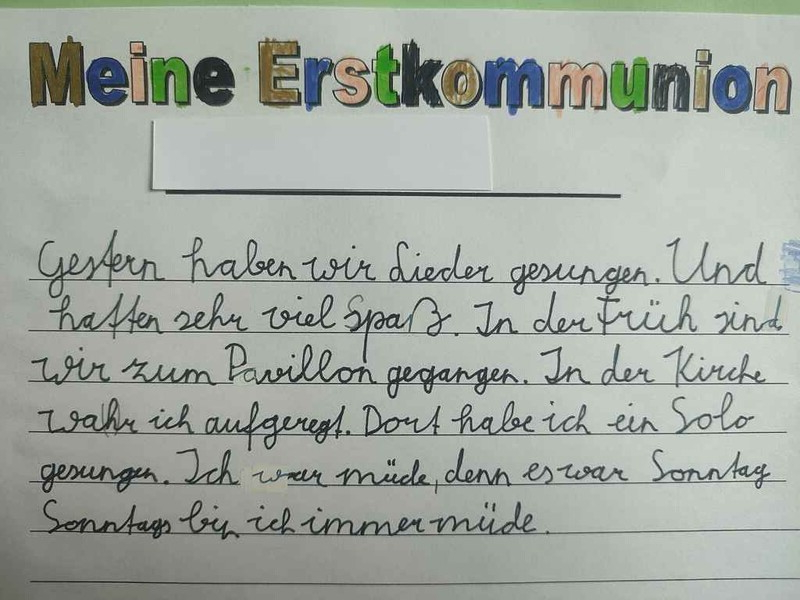 Meine Erstkommunion
Gestern haben wir Lieder gesungen. Und
hatten sehr viel Spaß. In der Früh sind
wir zum Pavillon gegangen. In der Kirche
wahr ich aufgeregt. Dort habe ich ein Solo
gesungen. Ich war müde, denn es war Sonntag
Sonntags bin ich immer müde.